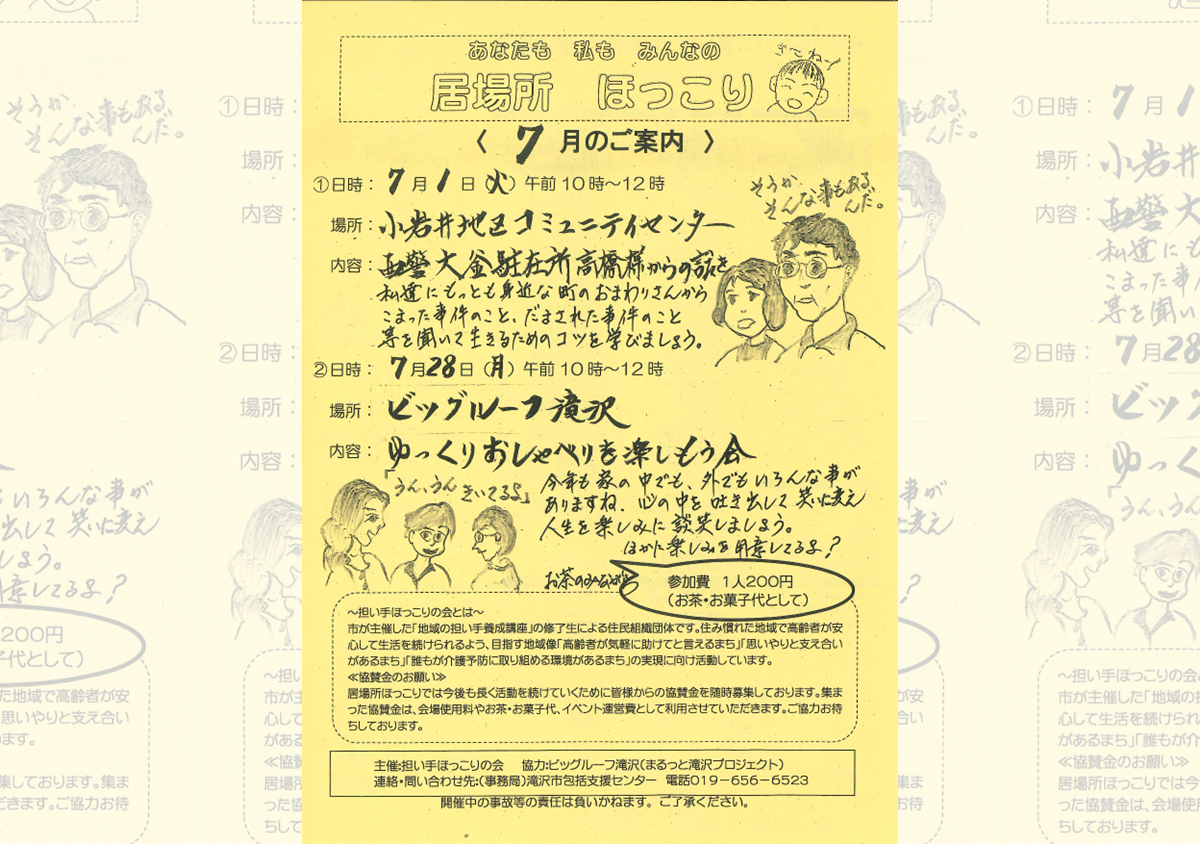 あなたも 私も みんなの
居場所 ほっこり
きてね〜
〈 7 月のご案内 〉
①日時： 7月1日(火)午前10時〜12時
場所： 小岩井地区コミュニティセンター
内容： 西警大釜駐在所高橋様からの話を
私達にもっとも身近な町のおまわりさんから
こまった事件のこと、だまされた事件のこと
等を聞いて生きるためのコツを学びましょう。
そうか、
そんな事もある、
んだ。
②日時： 7月28日(月)午前10時〜12時
場所： ビッグルーフ滝沢
内容： ゆっくりおしゃべりを楽しもう会
「うん、うん きいてるよ」
今年も家の中でも、外でもいろんな事が
ありますね、心の中を吐き出して笑いに変え
人生を楽しみに談笑しましょう。
ほかに楽しみを用意してるよ?
お茶のみながら
参加費 1人200円
(お茶・お菓子代として)
〜担い手ほっこりの会とは〜
市が主催した「地域の担い手養成講座」の修了生による住民組織団体です。住み慣れた地域で高齢者が安
心して生活を続けられるよう、目指す地域像「高齢者が気軽に助けてと言えるまち」「思いやりと支え合い
があるまち」「誰もが介護予防に取り組める環境があるまち」の実現に向け活動しています。
≪協賛金のお願い≫
居場所ほっこりでは今後も長く活動を続けていくために皆様からの協賛金を随時募集しております。集ま
った協賛金は、会場使用料やお茶・お菓子代、イベント運営費として利用させていただきます。ご協力お待
ちしております。
主催:担い手ほっこりの会 協力:ビッグルーフ滝沢(まるっと滝沢プロジェクト)
連絡・問い合わせ先:(事務局)滝沢市包括支援センター 電話019-656-6523
開催中の事故等の責任は負いかねます。ご了承ください。